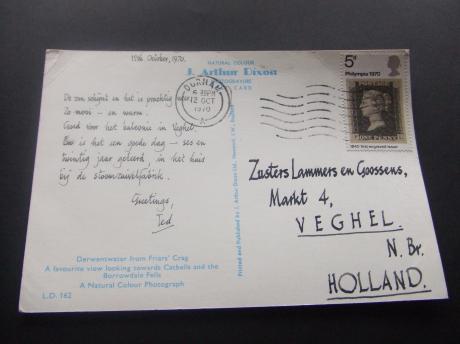 11th October, 1970.
NATURAL COLOUR
J. Arthur Dixon
PHOTOGRAVURE
POST CARD
De zon schijnt en het is prachtig weer.
Zo mooi - en warm.
Goed voor het
in Veghel.
Dan is het een goede dag - zes en
twintig jaar geleerd, in het huis
bij de stoomzuivelfabrik.
Greetings,
Ted
Derwentwater from Friars' Crag
A favourite view looking towards Catbells and the
Borrowdale Fells
A Natural Colour Photograph
L.D. 162
Printed and Published by J. Arthur Dixon Ltd., Newport, I.W.
DURHAM
12 OCT
1970
A
5d
Philympia 1970
POSTAGE
ONE PENNY
1840 first engraved issue
Zusters Lammers en Goossens,
Markt 4,
VEGHEL.
N. Br.
HOLLAND.